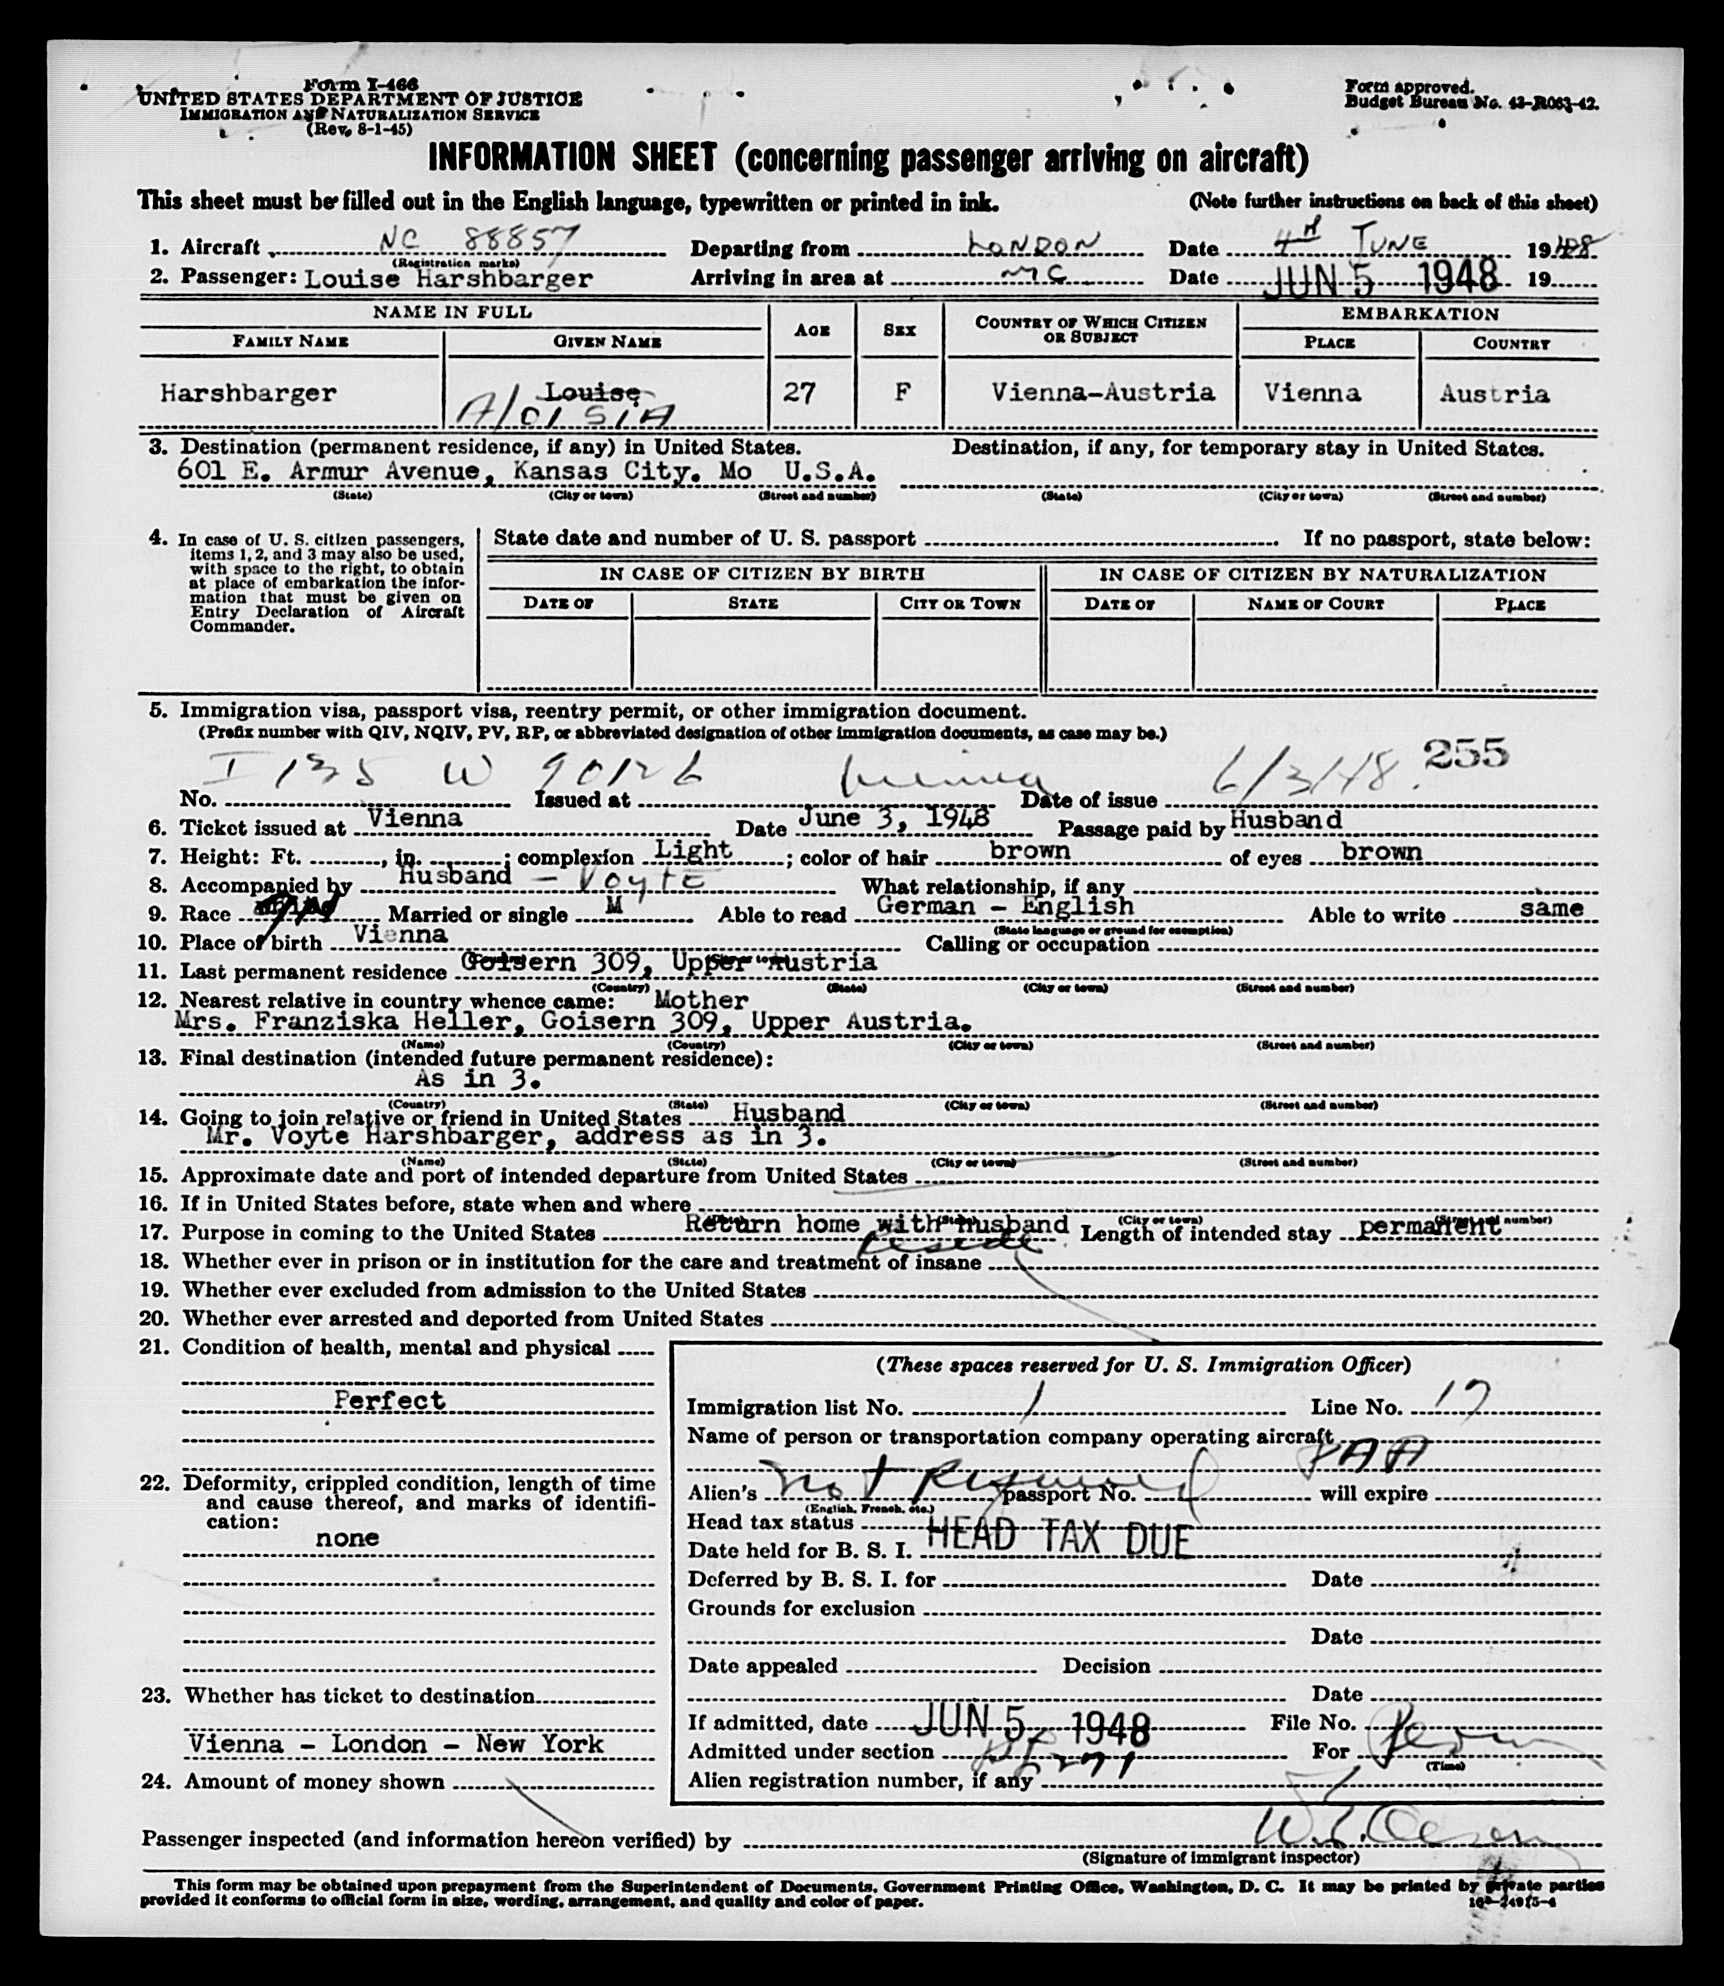 Form I-466
UNITED STATES DEPARTMENT OF JUSTICE
IMMIGRATION AND NATURALIZATION SERVICE
(Rev. 8-1-45)
Form approved.
Budget Bureau No. 43-R063-42.
INFORMATION SHEET (concerning passenger arriving on aircraft)
This sheet must be filled out in the English language, typewritten or printed in ink. (Note further instructions on back of this sheet)
1. Aircraft NC 88857 Departing from LONDON Date 4th JUNE 1948
(Registration marks)
2. Passenger: Louise Harshbarger Arriving in area at NYC Date JUN 5 1948 19
NAME IN FULL AGE SEX COUNTRY OF WHICH CITIZEN OR SUBJECT EMBARKATION
FAMILY NAME GIVEN NAME PLACE COUNTRY
Harshbarger Louise 27 F Vienna-Austria Vienna Austria
AlOISIA
3. Destination (permanent residence, if any) in United States. Destination, if any, for temporary stay in United States.
601 E. Armur Avenue, Kansas City. Mo U.S.A.
(State) (City or town) (Street and number) (State) (City or town) (Street and number)
4. In case of U. S. citizen passengers, items 1, 2, and 3 may also be used, with space to the right, to obtain at place of embarkation the information that must be given on Entry Declaration of Aircraft Commander.
State date and number of U. S. passport If no passport, state below:
IN CASE OF CITIZEN BY BIRTH IN CASE OF CITIZEN BY NATURALIZATION
DATE OF STATE CITY OR TOWN DATE OF NAME OF COURT PLACE
5. Immigration visa, passport visa, reentry permit, or other immigration document.
(Prefix number with QIV, NQIV, PV, RP, or abbreviated designation of other immigration documents, as case may be.)
I 135 W 90126 Vienna 6/3/48. 255
No. Issued at Date of issue
6. Ticket issued at Vienna Date June 3, 1948 Passage paid by Husband
7. Height: Ft. , in. ; complexion Light ; color of hair brown of eyes brown
8. Accompanied by Husband - Voyte What relationship, if any
9. Race Married or single M Able to read German - English Able to write same
(State language or ground for exemption)
10. Place of birth Vienna Calling or occupation
11. Last permanent residence Goisern 309, Upper Austria
(Country) (State) (City or town) (Street and number)
12. Nearest relative in country whence came: Mother
Mrs. Franziska Heller, Goisern 309, Upper Austria.
(Name) (Country) (City or town) (Street and number)
13. Final destination (intended future permanent residence):
As in 3.
(Country) (State) (City or town) (Street and number)
14. Going to join relative or friend in United States Husband
Mr. Voyte Harshbarger, address as in 3.
(Name) (State) (City or town) (Street and number)
15. Approximate date and port of intended departure from United States
16. If in United States before, state when and where
(City or town) (Street and number)
17. Purpose in coming to the United States Return home with husband Length of intended stay permanent
reside
18. Whether ever in prison or in institution for the care and treatment of insane
19. Whether ever excluded from admission to the United States
20. Whether ever arrested and deported from United States
21. Condition of health, mental and physical
Perfect
22. Deformity, crippled condition, length of time and cause thereof, and marks of identification:
none
23. Whether has ticket to destination
Vienna - London - New York
24. Amount of money shown
(These spaces reserved for U. S. Immigration Officer)
Immigration list No. 1 Line No. 17
Name of person or transportation company operating aircraft
PAA
Alien's not Required passport No. will expire
(English, French, etc.)
Head tax status HEAD TAX DUE
Date held for B. S. I.
Deferred by B. S. I. for Date
Grounds for exclusion
Date
Date appealed Decision
Date
If admitted, date JUN 5 1948 File No.
Admitted under section PL 271 For Perm
(Time)
Alien registration number, if any
Passenger inspected (and information hereon verified) by
(Signature of immigrant inspector)
This form may be obtained upon prepayment from the Superintendent of Documents, Government Printing Office, Washington, D. C. It may be printed by private parties
provided it conforms to official form in size, wording, arrangement, and quality and color of paper.